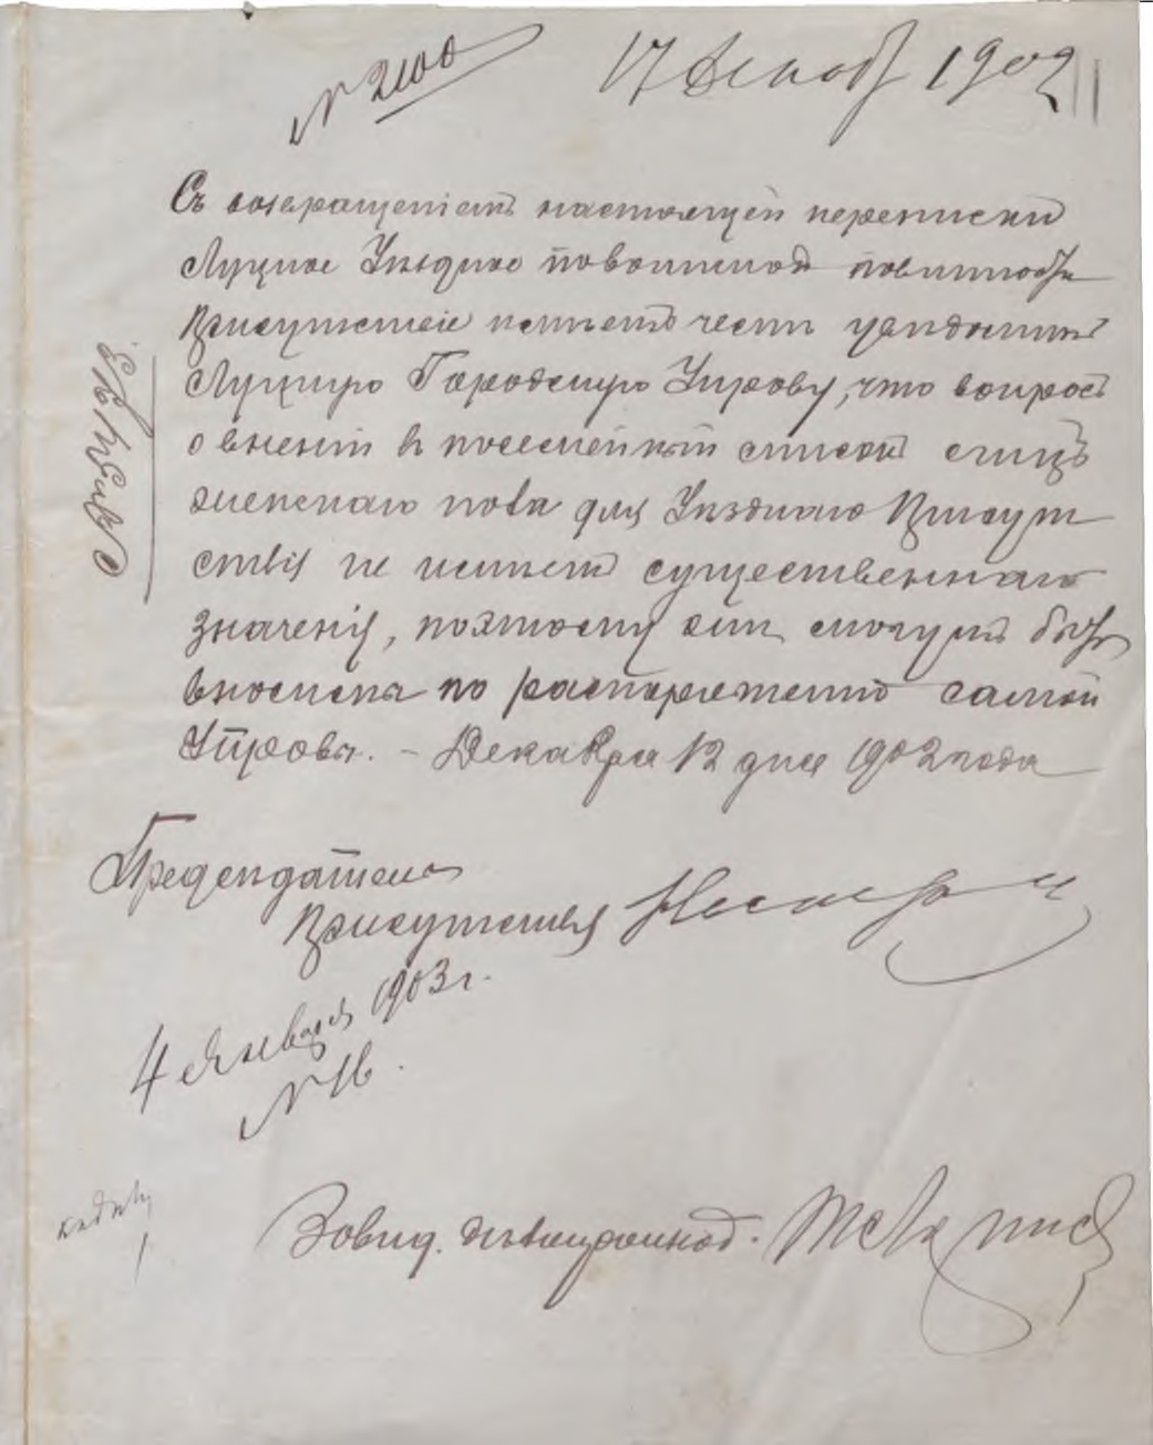 № 2100
17 Декаб 1902
Съ возвращеніемъ настоящей переписки
Луцкое Уѣздное по воинской повинности
Присутствіе имѣетъ честь увѣдомить
Луцкую Городскую Управу, что вопросъ
о внесеніи въ посемейный списокъ лицъ
женскаго пола для Уѣзднаго Присут
ствія не имѣетъ существеннаго
значенія, поэтому они могутъ быть
вносимы по распоряженію самой
Управы. – Декабря 12 дня 1902 года
Предсѣдатель
Присутствія
4 Января 1903 г.
№ 16.
Завѣд. дѣлопроизвод.